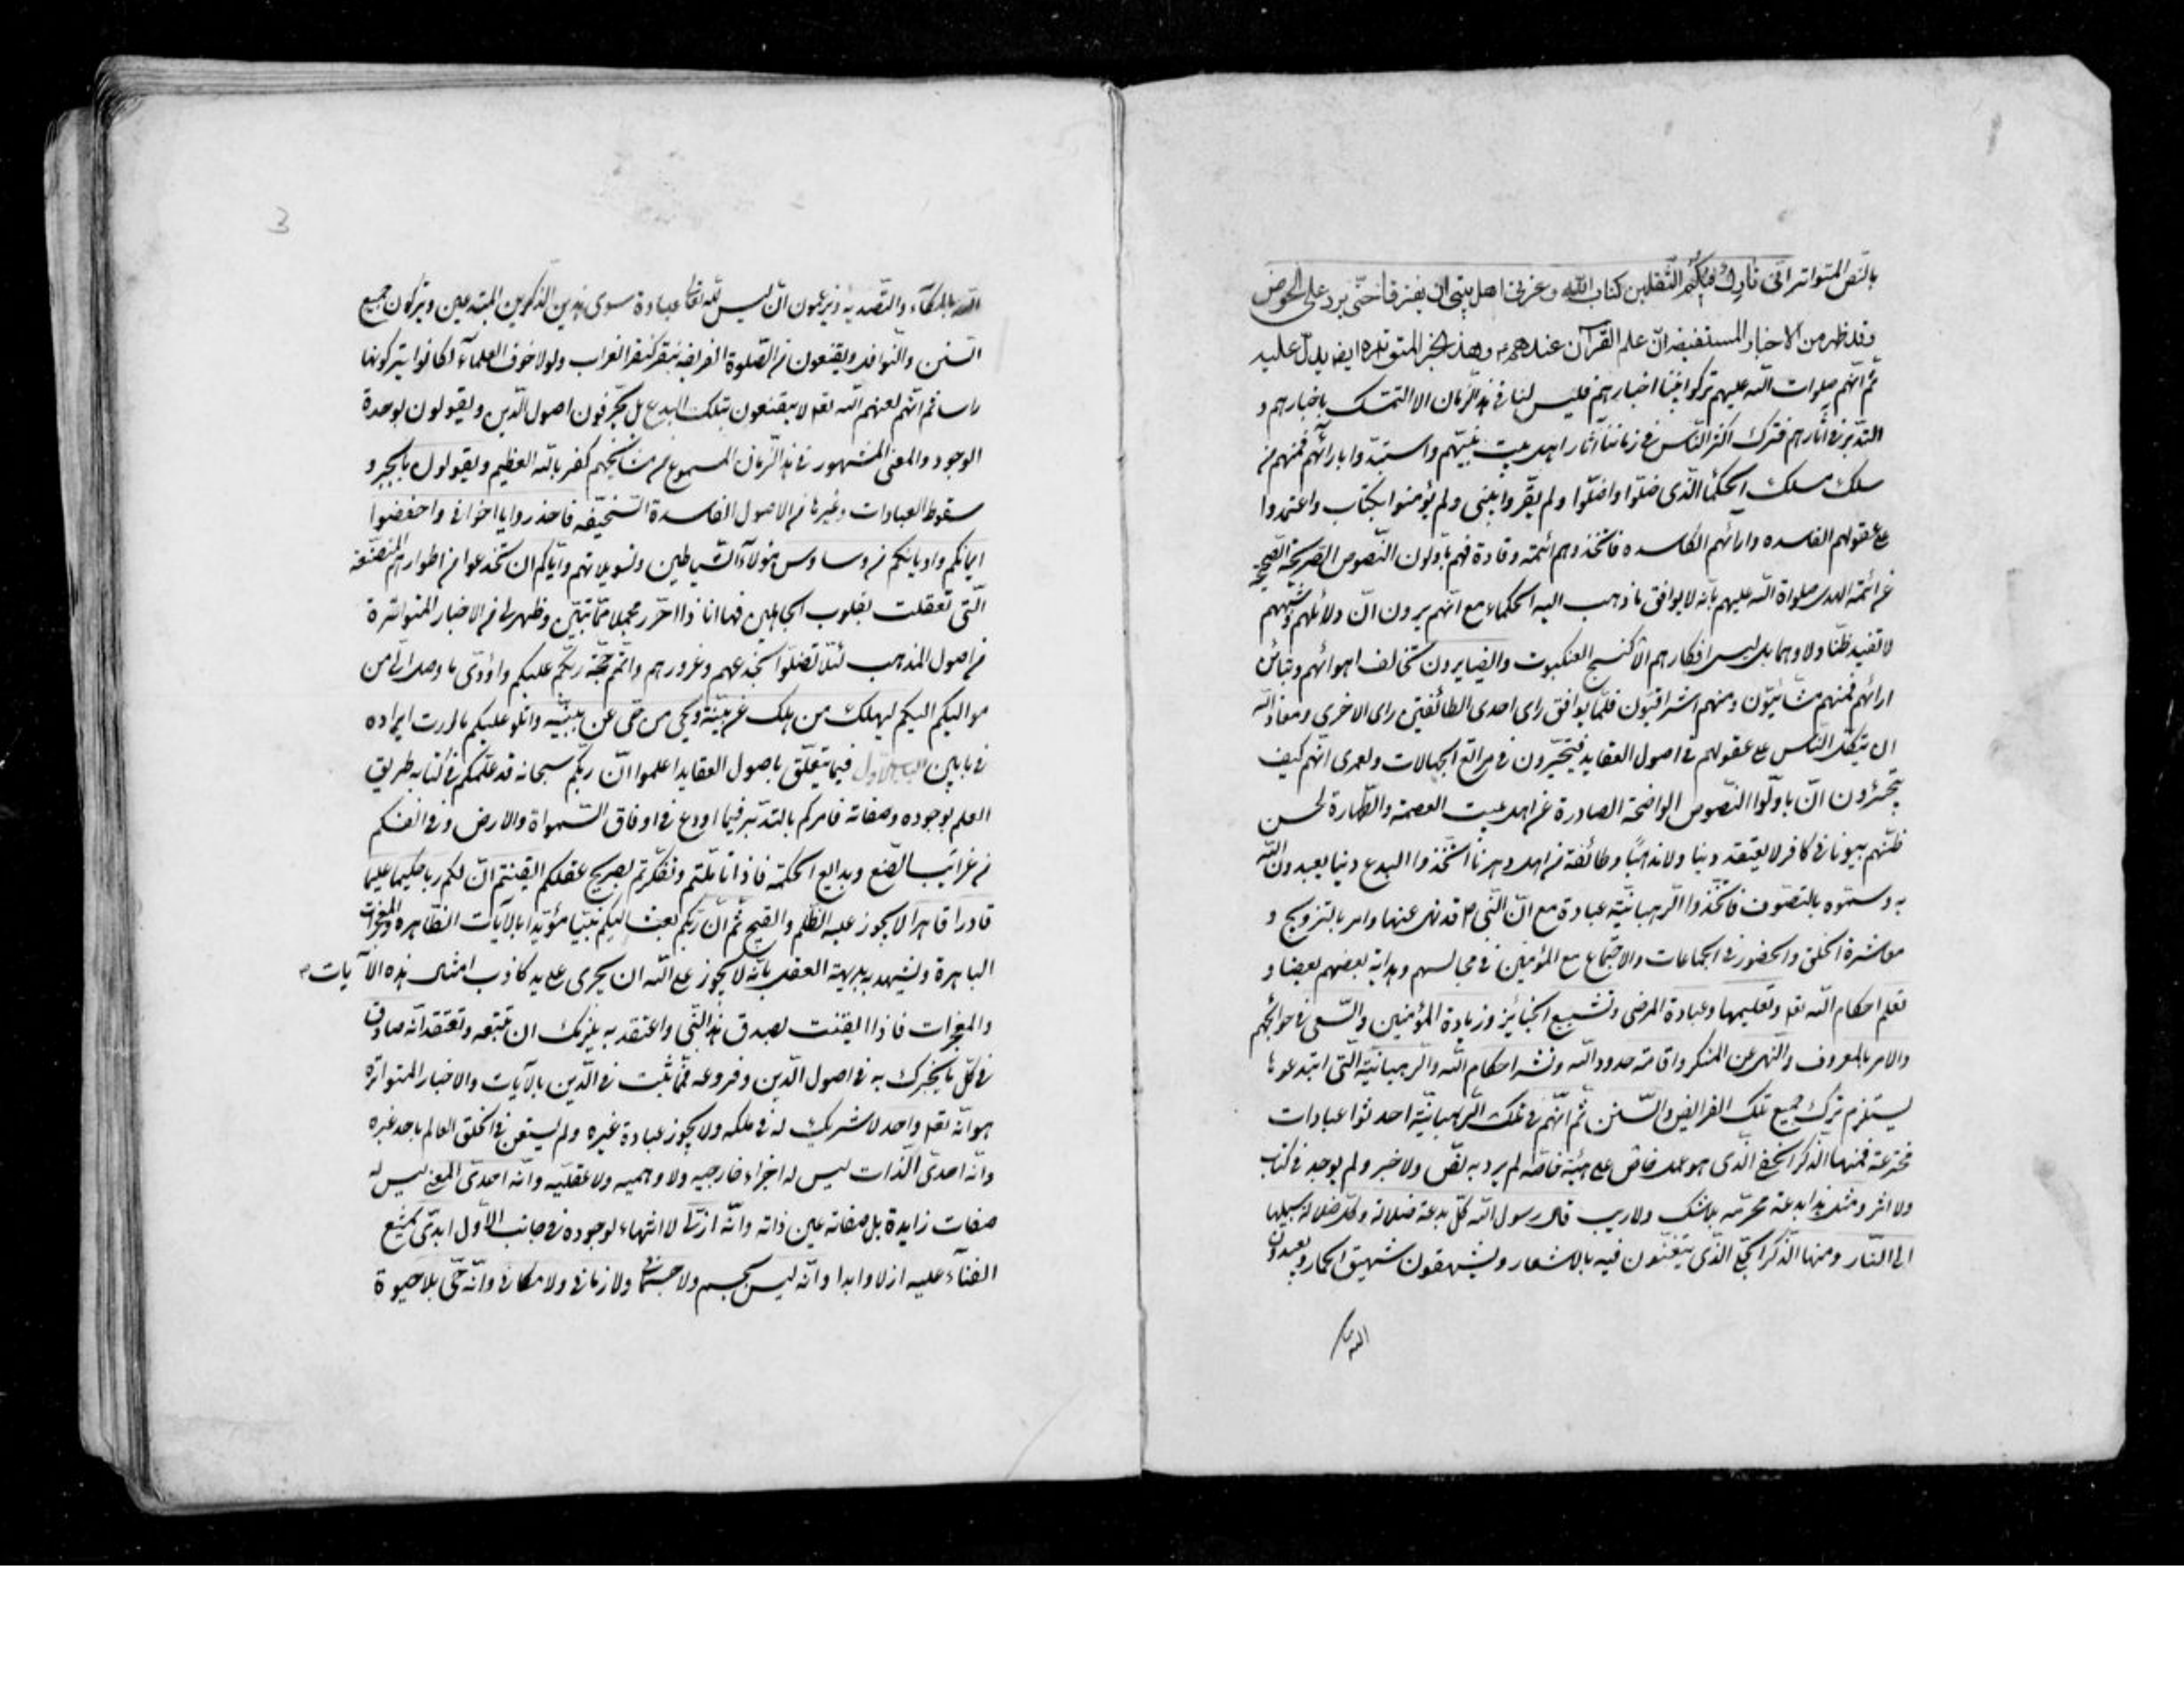 بالنص المتواتر انی تارك فیكم الثقلین كتاب الله و عترتی اهل بیتی لن یفترقا حتی یردا علی الحوض
وقد ظهر من الاخبار المستفیضه ان علم القرآن عندهم وهذا الخبر المتواتره ایضا یدل علیه
ثم انهم صلوات الله علیهم تركوا بیننا اخبارهم فلیس لنا فی هذا الزمان الا التمسك باخبارهم و
التدبر فی آثارهم فترك اكثر الناس فی زماننا آثار اهل بیت نبیهم واستبدوا بارائهم فمنهم من
سلك مسلك الحكماء الذی ضلوا واضلوا ولم یقروا بنبی ولم یؤمنوا بكتاب واعتمدوا
علی عقولهم الفاسده وارائهم الكاسده فاتخذوهم ائمة وقادة فهم یأولون النصوص الصریحة الصحیحة
عن ائمة الهدی صلواة الله علیهم بانه لا یوافق ما ذهب الیه الحكماء مع انهم یرون ان دلائلهم وشبههم
لا تفید ظنا ولا وهما بل لیس افكارهم الا كنسج العنكبوت وایضا یرون تخالف اهوائهم وتباین
ارائهم فمنهم مشائیون ومنهم اشراقیون قلما یوافق رای احدی الطائفتین رای الاخری ومعاذ الله
ان یتكل الناس علی عقولهم فی اصول العقاید فیتحیرون فی مراتع الجهالات ولعمری انهم كیف
یجترؤن ان یأولوا النصوص الواضحة الصادرة عن اهل بیت العصمة والطهارة لحسن
ظنهم بیونانی كافر لا یعتقد دینا ولا مذهبا وطائفة من اهل دهرنا اتخذوا البدع دینا یعبدون الله
به وسموه بالتصوف فاتخذوا الرهبانیة عبادة مع ان النبی ص قد نهی عنها وامر بالتزویج و
معاشرة الخلق والحضور فی الجماعات والاجتماع مع المؤمنین فی مجالسهم وهدایة بعضهم بعضا و
تعلم احكام الله تعالی وتعلیمها وعیادة المرضی وتشییع الجنایز وزیارة المؤمنین والسعی فی حوائجهم
والامر بالمعروف والنهی عن المنكر واقامة حدود الله ونشر احكام الله والرهبانیة التی ابتدعوها
یستلزم ترك جمیع تلك الفرایض والسنن ثم انهم فی تلك الرهبانیة احدثوا عبادات
مخترعة فمنها الذكر الخفی الذی هو عمل خاص علی هیئة خاصة لم یرد به نص ولا خبر ولم یوجد فی كتاب
ولا اثر ومثل هذا بدعة محرمة بلا شك ولا ریب قال رسول الله كل بدعة ضلالة وكل ضلالة سبیلها
الی النار ومنها الذكر الجلی الذی یتغنون فیه بالاشعار ویشهقون شهیق الحمار ویعبدون
الله بالمكاء
3
الله بالمكآء والتصدیة ویزعمون ان لیس لله تعالی عبادة سوی هذین الذكرین المبتدعین ویتركون جمیع
السنن والنوافل ویقنعون من الصلوة الفریضه بنقر كنقر الغراب ولولا خوف العلمآء لكانوا یتركونها
راسا ثم انهم لعنهم الله تعالی لا یقنعون بتلك البدع بل یحرفون اصول الدین ویقولون بوحدة
الوجود والمعنی المشهور فی هذا الزمان المسموع من مشایخهم كفر بالله العظیم ویقولون بالجبر و
سقوط العبادات وغیرها من الاصول الفاسدة السخیفه فاحذروا یا اخوانی واحفظوا
ایمانكم وادیانكم من وساوس هؤلاء الشیاطین وتسویلاتهم وایاكم ان تخدعوا من اطوارهم المتصنعة
التی تعلقت بقلوب الجاهلین فها انا ذا احرر مجملا مما تبین وظهر لی من الاخبار المتواترة
من اصول المذهب لئلا تضلوا بخدعهم وغرورهم واتمم حجة ربكم علیكم واؤدی ما وصل الی من
موالیكم الیكم لیهلك من هلك عن بینة ویحیی من حی عن بینة واتلو علیكم ما اردت ایراده
فی بابین الباب الاول فیما یتعلق باصول العقاید اعلموا ان ربكم سبحانه قد علمكم فی كتابه طریق
العلم بوجوده وصفاته فامركم بالتدبر فیما اودع فی اوفاق السمواة والارض وفی انفسكم
من غرائب الصنع وبدایع الحكمة فاذا تاملتم وتفكرتم بصریح عقلكم ایقنتم ان لكم ربا حكیما علیما
قادرا قاهرا لا یجوز علیه الظلم والقبیح ثم ان ربكم بعث الیكم نبیا مؤیدا بالآیات الظاهره والمعجزات
الباهرة ویشهد بدیهة العقل بانه لا یجوز علی الله ان یجری علی ید كاذب امثال هذه الآیات
والمعجزات فاذا ایقنت بصدق هذا النبی واعتقد به یلزمك ان تتبعه وتعتقد انه صادق
فی كل ما یخبرك به فی اصول الدین وفروعه فمما ثبت فی الدین بالآیات والاخبار المتواترة
هو انه تعالی واحد لا شریك له فی ملكه ولا یجوز عبادة غیره ولم یستعن فی خلق العالم باحد غیره
وانه احدی الذات لیس له اجزاء خارجیه ولا وهمیه ولا عقلیه وانه احدی المعنی لیس له
صفات زایدة بل صفاته عین ذاته وانه ازلی لا انتهاء لوجوده فی جانب الاول ابدی یمتنع
الفنآء علیه ازلا وابدا وانه لیس بجسم ولا جسمانی ولا زمانی ولا مكانی وانه حی بلا حیوة